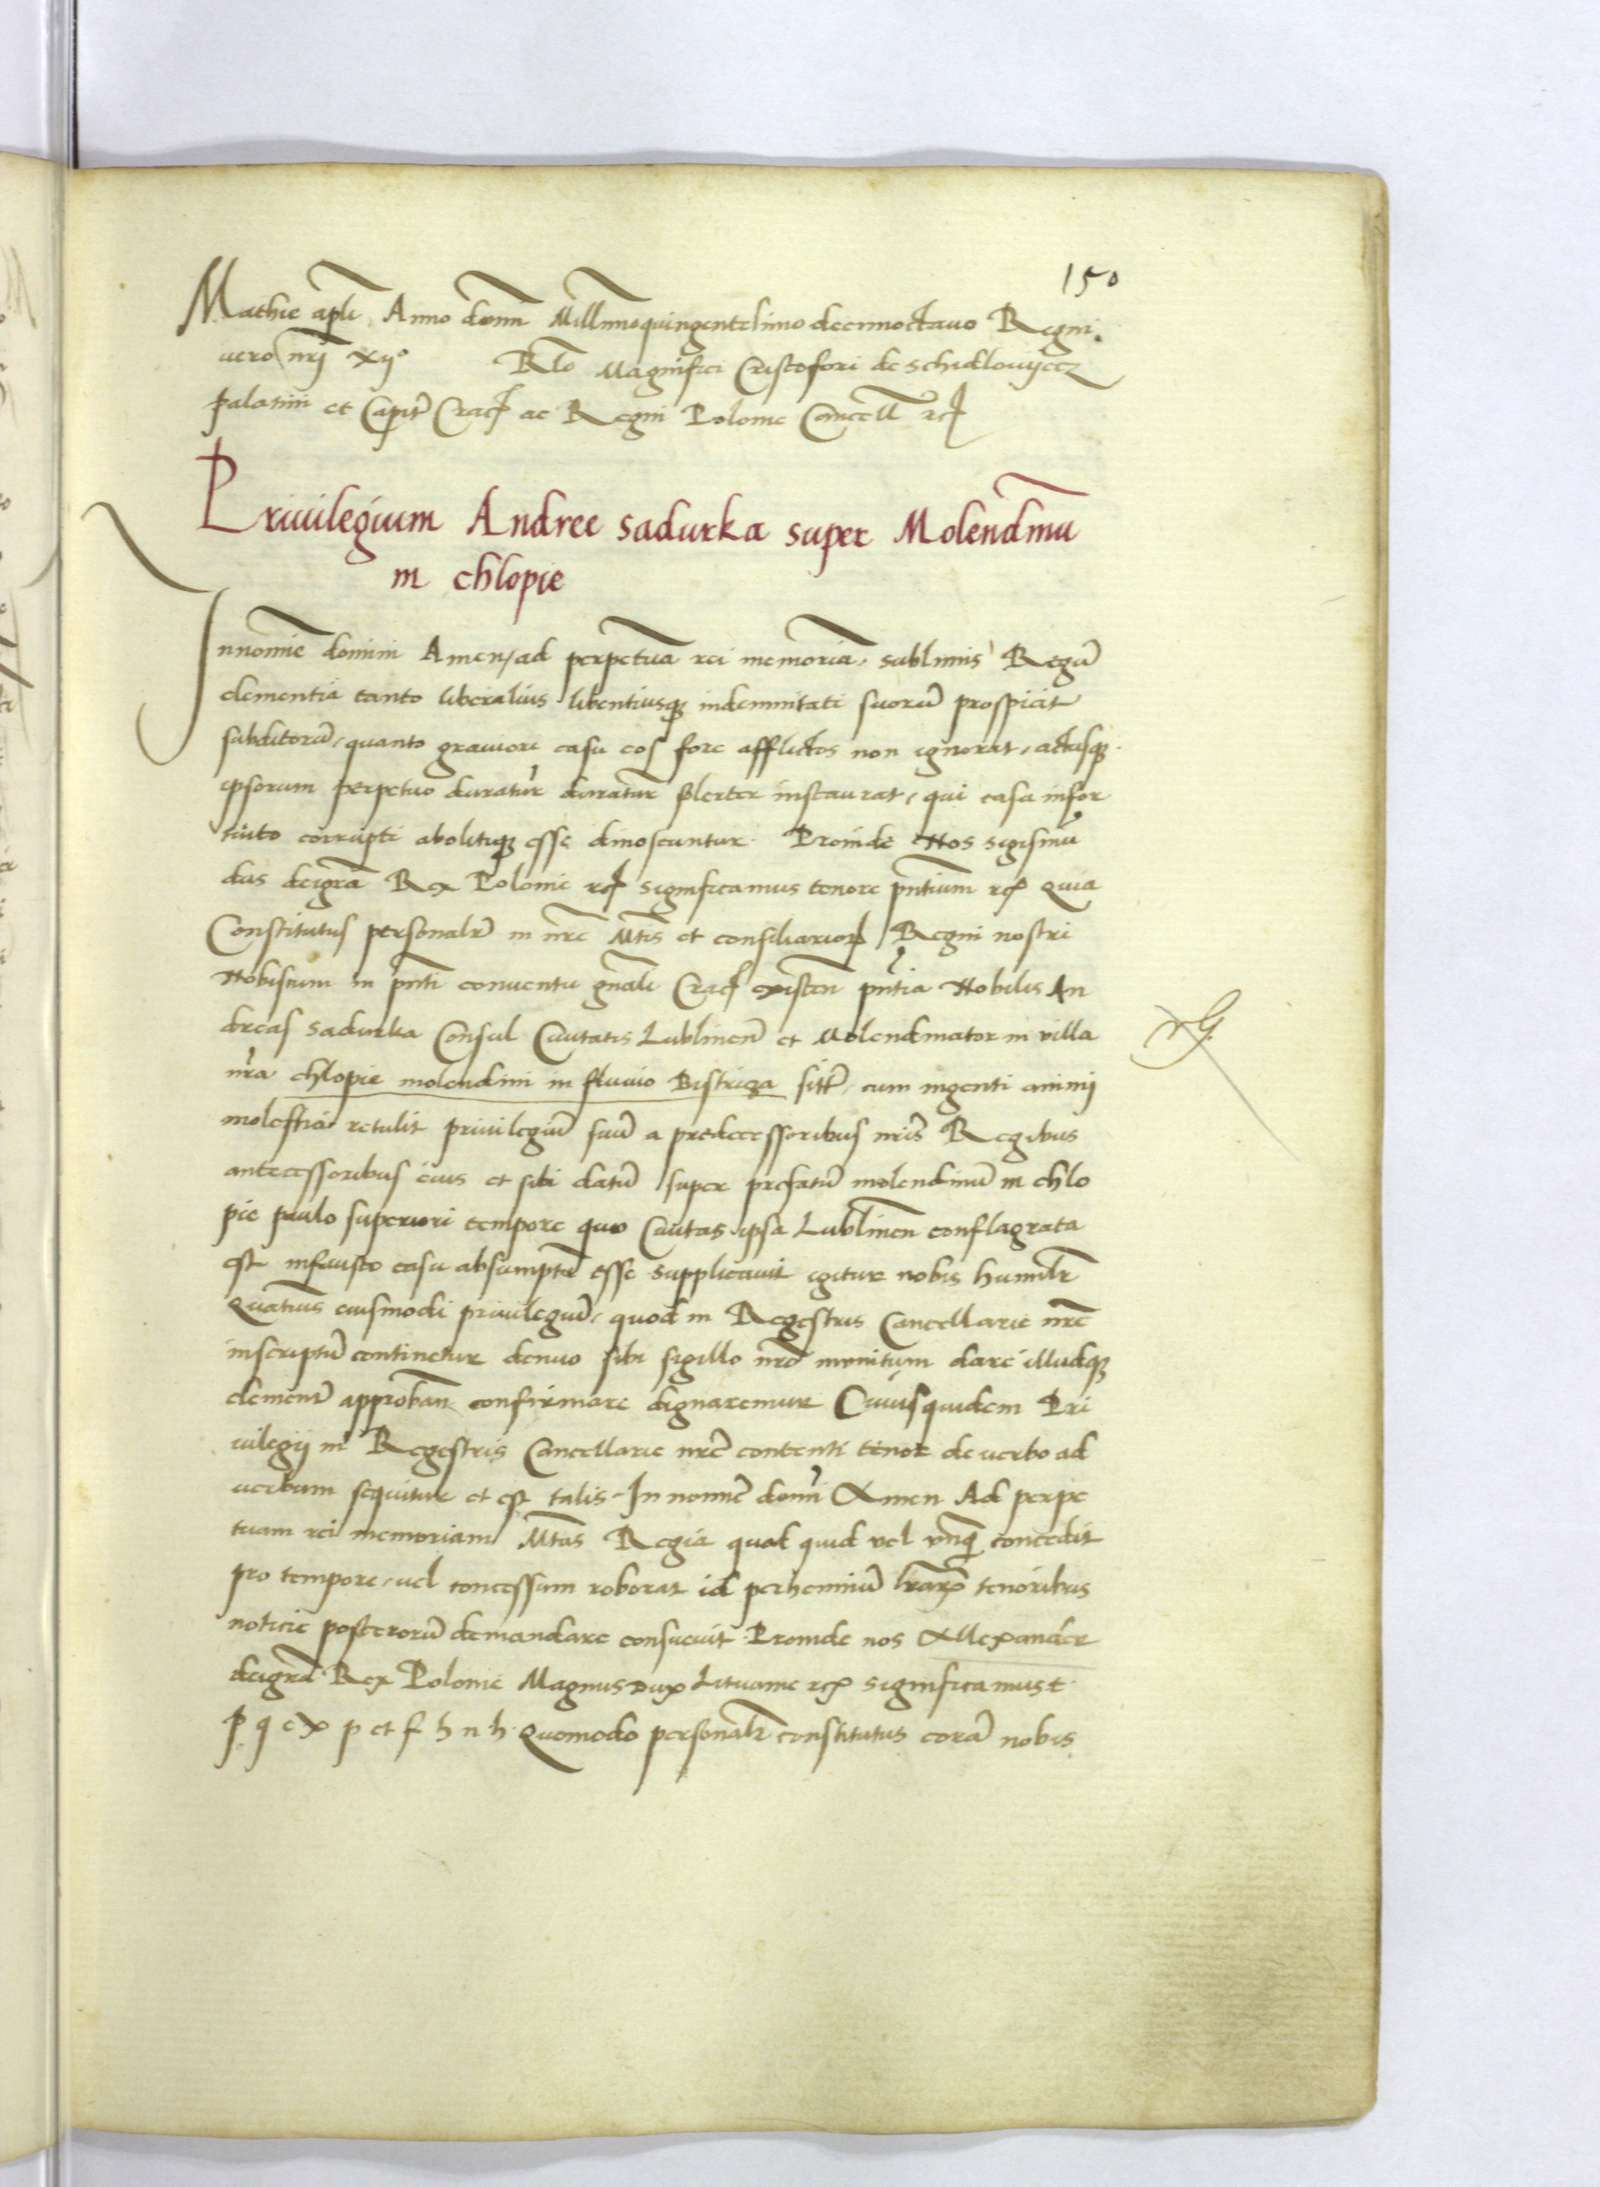 150
Mathie apli Anno domi Millimoquingentesimo decimoctauo Regni.
uero nrj xijo Rlo Magnifici Cristofori de Schidlovijecz
palatini et Capit Crac ac Regni Polonie Cancell rc
Priuilegium Andree sadurka super Molendinu
in chlopie
Innomine domini Amen, ad perpetua rei memoria. sublimis Regu
clementia tanto liberalius libentiusq indemnitati suoru prospicit
subditoru, quanto grauiori casu eos fore afflictos non ignorat, actusq
ipsorum perpetuo duratur duratur solerter instaurat, qui casu infor
tuito corrupti abolitiq esse dinoscuntur. Proinde Nos sigismu
dus deigra Rex Polonie rc significamus tenore pntium rc Quia
Constitutus personalr in nre Mtis et consiliarior Regni nostri
Nobiscum in pnti conuentu gnali Crac existen pntia Nobilis An
dreas sadurka Consul Ciuitatis Lublinen et Molendinator in villa
nra chlopie molendini in fluuio Bistriza sitt, cum ingenti animj
molestia retulit priuilegiu suu a predecessoribus nris Regibus
antecessoribus eius et sibi datu super prefatu molendinu in chlo
pie paulo superiori tempore quo Ciuitas ipsa Lublinen conflagrata
est infausto casu absumptu esse supplicauit igitur nobis humilr
Quatinus eiusmodi priuilegiu, quod in Regestris Cancellarie nre
inscriptu continetur denuo sibi sigillo nro munitum dare illudq
clementr approban confirmare dignaremur Cuiusquidem Pri
uilegij in Regestris Cancellarie nre contenti tenor de uerbo ad
uerbum sequitur et est talis. In nomine domi Amen Ad perpe
tuam rei memoriam Mtas Regia quod quid vel vnq concedit
pro tempore, uel concessum roborat id perhenniu lrarum tenoribus
noticie posteroru demandare consueuit. Proinde nos Allexander
deigra Rex Polonie Magnus Dux Lituanie rc significamus t
p q e x p et f h n h. Quomodo personalr constitutus cora nobis